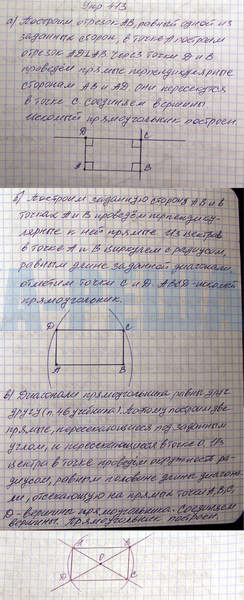 Упр 413
а) Построим отрезок AB, равный одной из
заданных сторон, в точке A построим
отрезок AD⊥AB. Через точки D и B
проведём прямые перпендикулярные
сторонам AB и AD. Они пересекутся
в точке C. Соединяем вершины
Искомый прямоугольник построен.
D C
A B
б) Построим заданную сторону AB и в
точках A и B проведём перпендику-
лярные к ней прямые. Из центров
в точке A и B циркулем с радиусом,
равным длине заданной диагонали,
отметим точки C и D. ABCD-искомый
прямоугольник.
D C
A B
в) Диагонали прямоугольника равны друг
другу (п.46 учебника). Поэтому построим две
прямые, пересекающиеся под заданным
углом, и пересекающиеся в точке O. Из
центра в точке проведём окружность ра-
диусом, равным половине длины диагона-
ли, отсекающую на прямых точки A, B, C,
D - вершины прямоугольника. Соединяем
вершины. Прямоугольник построен.
A B
O
D C